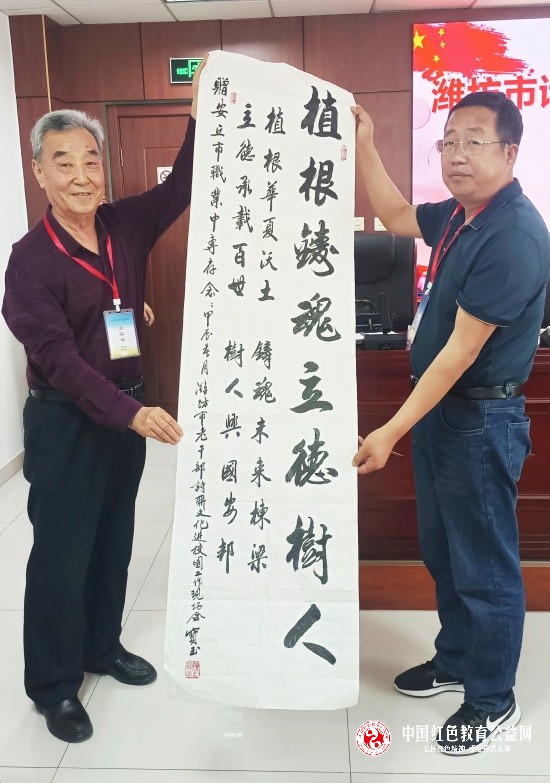 潍坊市
植根鑄魂立德樹人
植根華夏沃土 鑄魂未来棟梁
立德承載百世 樹人興國安邦
贈安丘市職業中專存念 甲辰
潍坊市老干部詩聯文化進校園工作現場會 寶玉
中国红色教育公益网